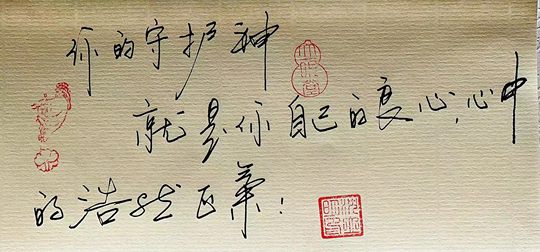 你的守护神
就是你自己的良心,心中
的浩然正气!